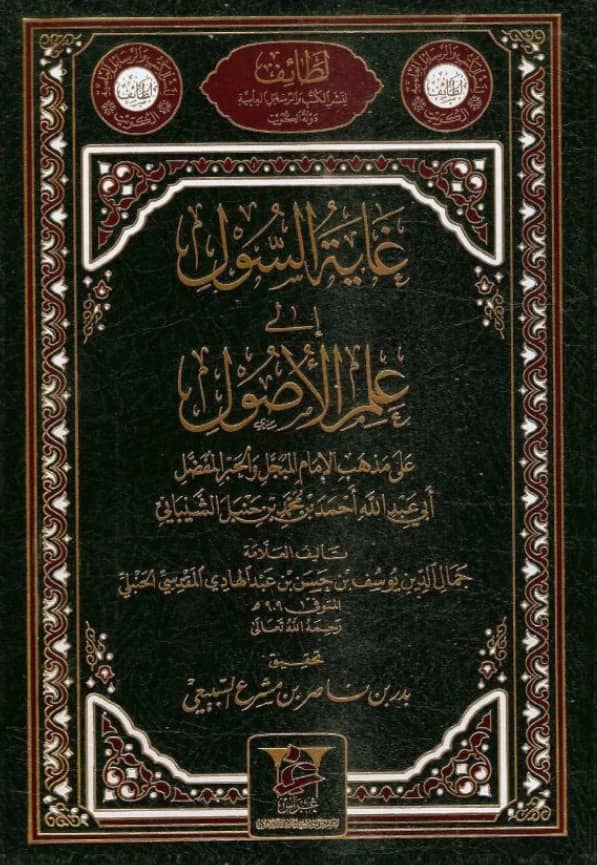 لطائف
لنشر الكتب والرسائل العلمية
دولة الكويت
لطائف
الكويت
لطائف
الكويت
غَايَةُ السُّولِ
إلى
عِلْمِ الأُصُولِ
عَلَى مَذْهَبِ الإِمَامِ المُبَجَّلِ وَالحَبْرِ المُفَضَّلِ
أَبِي عَبْدِ اللَّهِ أَحْمَدَ بْنِ مُحَمَّدِ بْنِ حَنْبَلٍ الشَّيْبَانِيِّ
تأليف العلامة
جمال الدين يوسف بن حسن بن عبد الهادي المقدسي الحنبلي
المتوفى ٩٠٩ هـ
رحمه الله تعالى
تحقيق
بدر بن ناصر بن مشرع السبيعي
غراس